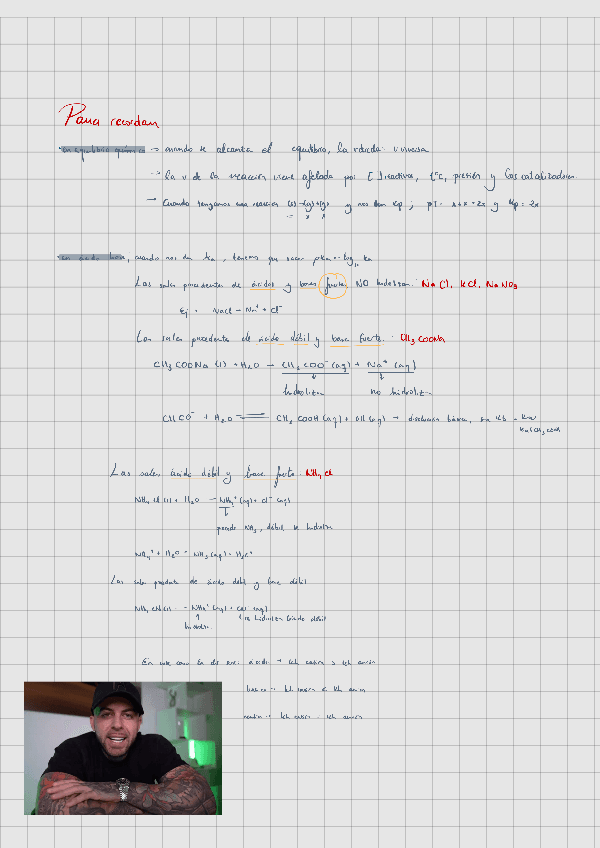 Para recordar
en equilibrio químico → cuando se alcanza el equilibrio, la v directa = v inversa
→ la v de la reacción viene afectada por [ ] reactivos, tªC, presión y los catalizadores.
→ Cuando tengamos una reacción (s) → (g) + (g) y nos dan Kp; pT = x + x = 2x y Kp =
en ácido base, cuando nos dan ka, tenemos que sacar pka = -log ka
Las sales procedentes de ácidos y bases fuertes NO hidrolizan. NaCl, KCl, NaNO3
Ej = NaCl → Na+ + Cl-
Las sales procedente de ácido débil y base fuerte. CH3COONa
CH3COONa (s) + H2O → CH3COO- (aq) + Na+ (aq)
hidroliza no hidroliza
+ H2O CH3COOH (aq) + OH (aq) → disolución básica, Kb = Kw
Ka(CH3COOH
Las sales ácido débil y base fuerte. NH4Cl
NH4Cl (s) + H2O → NH4+ (aq) + Cl- (aq)
procede NH3, débil se hidroliza
NH4+ + H2O → NH3 (aq) + H3O+
Las sales procedente de ácido débil y base débil
NH4CN (s) → NH4+ (aq) + CN- (aq)
hidroliza se hidroliza ácido débil
En este caso la dis será: ácida → Kh catión > Kh anión
básica → Kh catión < Kh anión
neutra → Kh catión = Kh anión